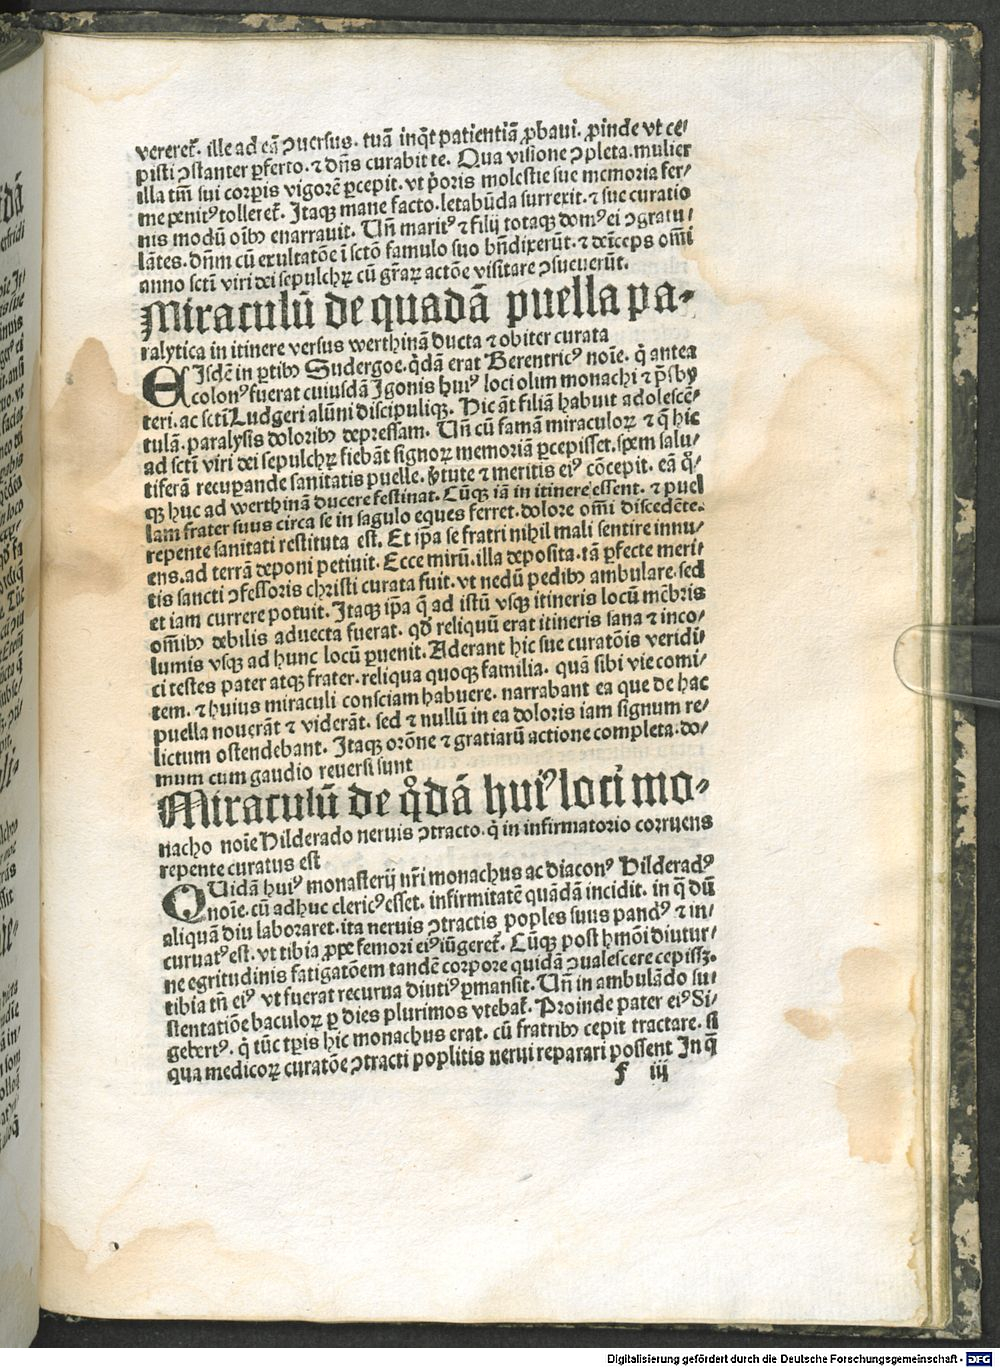 vereret᷒. ille ad eā ꝯversus. tuā inq̄t patientiā ꝓbaui. ꝓinde vt ce⸗
pisti ꝯstanter ꝑferto. ⁊ dn̄s curabit te. Qua visione ꝯpleta. mulier
illa tm̄ sui corꝑis vigorē ꝑcepit. vt p̄oris molestie sue memoria fer⸗
me penitꝰ tolleret᷒. Itaqꝫ mane facto. letabūda surrexit. ⁊ sue curatio
nis modū oībꝫ enarravit. Un̄ maritꝰ ⁊ filij totaqꝫ domꝰ ei ꝯgratu⸗
lātes. dn̄m cū exultatōe ī sctō famulo suo bn̄dixerūt. ⁊ deīceps om̄i
anno sctī viri dei sepulchꝝ cū gr̄aꝝ actōe visitare ꝯsueverūt.
Miraculū de quadā puella pa⸗
ralytica in itinere versus werthinā ducta ⁊ obiter curata
EIsdē in ꝑtibꝫ Sudergoe. q̇dā erat Berentricꝰ noīe. q̇ antea
colonꝰ fuerat cuiusdā Igonis huiꝰ loci olim monachi ⁊ p̄sby
teri. ac sctī Ludgeri alūni discipuliqꝫ. Hic āt filiā habuit adolescē⸗
tulā. paralysis doloribꝫ depressam. Un̄ cū famā miraculoꝝ ⁊ q̄ hic
ad sctī viri dei sepulchꝝ fiebāt signoꝝ memoriā ꝑcepisset. spem salu⸗
tiferā recuꝑande sanitatis puelle. v̄tute ⁊ meritis eiꝰ cōcepit. eā q̊⸗
qꝫ huc ad werthinā ducere festinat. Cūqꝫ iā in itinere essent. ⁊ puel
lam frater suus circa se in sagulo eques ferret. dolore om̄i discedēte.
repente sanitati restituta est. Et ip̄a se fratri nihil mali sentire innu⸗
ens. ad terrā deponi petiuit. Ecce mirū. illa deposita. tā ꝑfecte meri⸗
tis sancti ꝯfessoris christi curata fuit. vt nedū pedibꝫ ambulare. sed
et iam currere potuit. Itaqꝫ ip̄a q̄ ad istū vsqꝫ itineris locū mēbris
om̄ibꝫ debilis aduecta fuerat. qd̄ reliquū erat itineris sana ⁊ inco⸗
lumis vsqꝫ ad hunc locū ꝑuenit. Aderant hic sue curatōis veridi⸗
ci testes pater atqꝫ frater. reliqua quoqꝫ familia. quā sibi vie comi⸗
tem. ⁊ huius miraculi consciam habuere. narrabant ea que de hac
puella nouerāt ⁊ viderāt. sed ⁊ nullū in ea doloris iam signum re⸗
lictum ostendebant. Itaqꝫ orōne ⁊ gratiarū actione completa. do⸗
mum cum gaudio reuersi sunt
Miraculū de q̊dā huiꝰ loci mo⸗
nacho noīe Hilderado neruis ꝯtracto. q̇ in infirmatorio corruens
repente curatus est
QUidā huiꝰ monasterij nr̄i monachus ac diaconꝰ Hilderadꝰ
noīe. cū adhuc clericꝰ esset. infirmitatē quādā incidit. in q̄ dū
aliquā diu laboraret. ita neruis ꝯtractis poples suus pandꝰ ⁊ in⸗
curuatꝰ est. vt tibia ꝓpe femori eiꝰ iūgeret᷒. Cūqꝫ post hmōi diutur⸗
ne egritudinis fatigatōem tandē corpore quidā ꝯualescere cepissꝫ.
tibia tn̄ eiꝰ vt fuerat recurua diutiꝰ ꝑmansit. Un̄ in ambulādo su⸗
stentatiōe baculoꝝ ꝑ dies plurimos vtebat᷒. Proinde pater eiꝰ Si⸗
gebertꝰ. q̇ tūc tꝑis hic monachus erat. cū fratribꝫ cepit tractare. si
qua medicoꝝ curatōe ꝯtracti poplitis nerui reparari possent In q̄
f iij
Digitalisierung gefördert durch die Deutsche Forschungsgemeinschaft - DFG